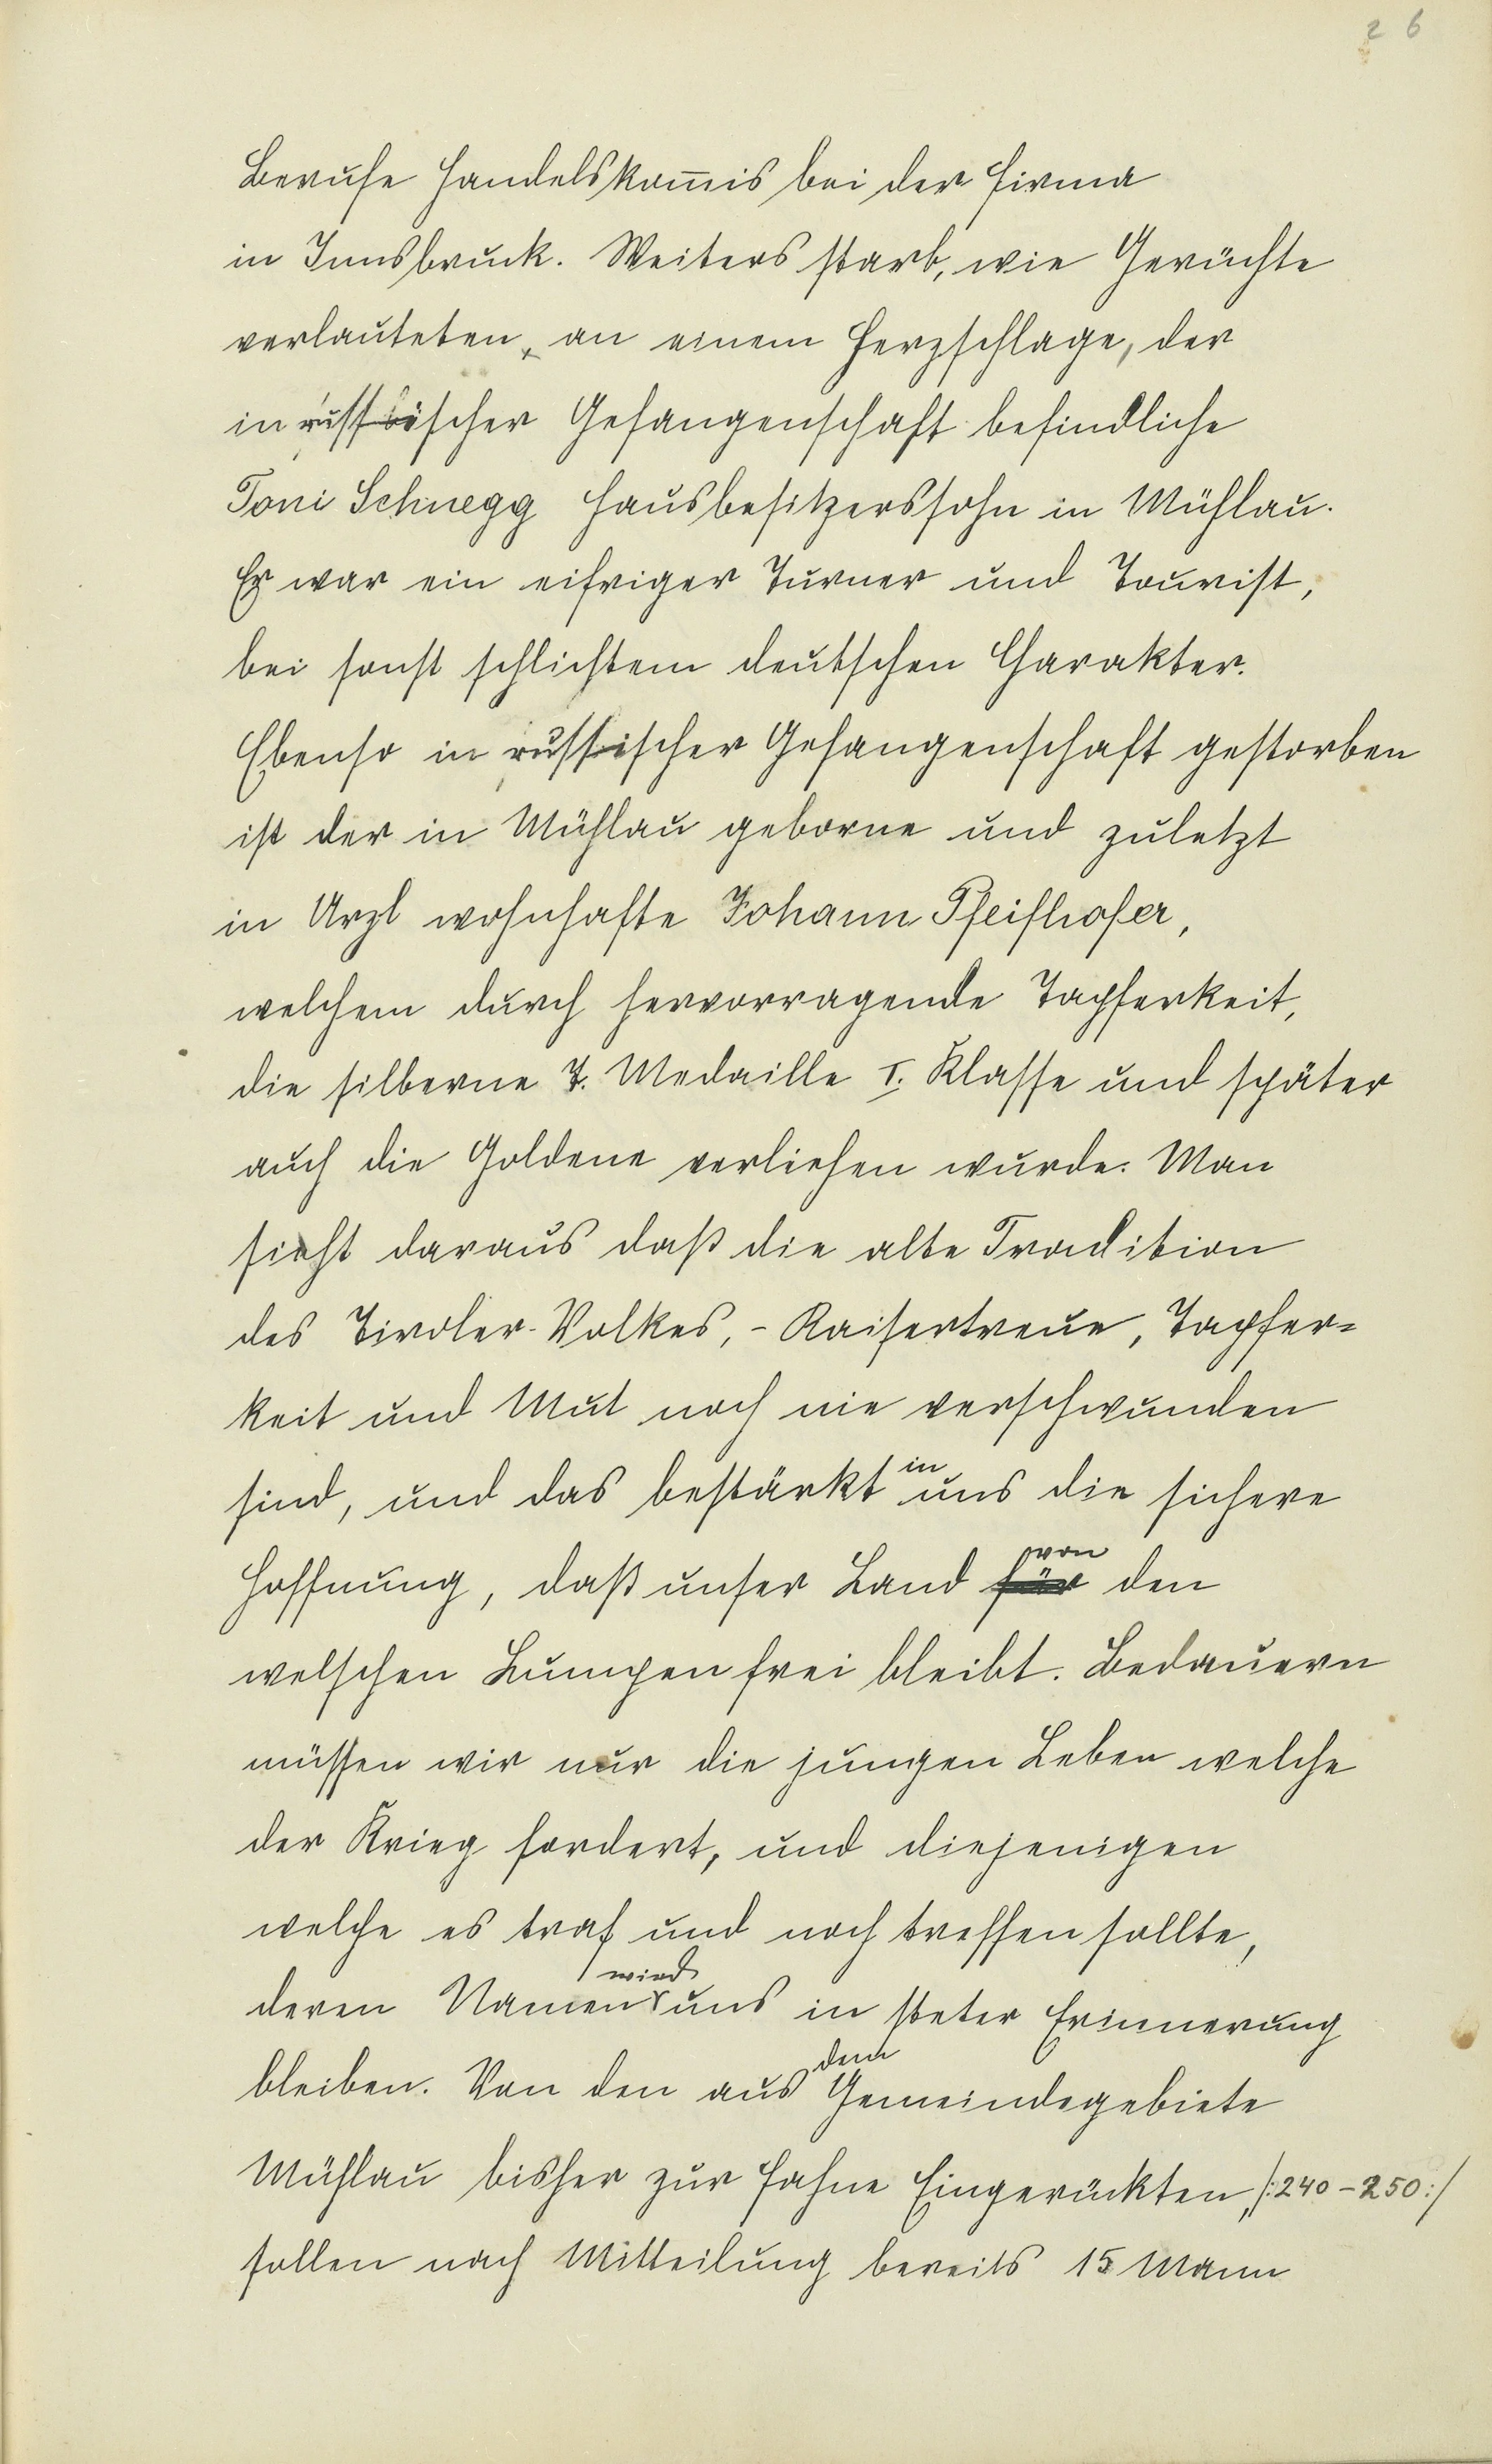 26
Berufe Handelskom̅is bei der Firma
in Innsbruck. Weiters starb, wie Gerüchte
verlauteten, an einem Herzschlage, der
in russischer Gefangenschaft befindliche
Toni Schnegg Hausbesitzerssohn in Mühlau.
Er war ein eifriger Turner und Tourist,
bei sonst schlichtem deutschen Charakter.
Ebenso in russischer Gefangenschaft gestorben
ist der in Mühlau geborne und zuletzt
in Arzl wohnhafte Johann Pfeifhofer,
welchem durch hervorragende Tapferkeit,
die silberne T. Medaille I. Klasse und später
auch die Goldene verliehen wurde. Man
sieht daraus daß die alte Tradition
des Tiroler-Volkes, - Kaisertreue, Tapfer=
keit und Mut noch nie verschwunden
sind, und das bestärkt in uns die sichere
Hoffnung, daß unser Land für von den
welschen Lumpen frei bleibt. Bedauern
müssen wir nur die jungen Leben welche
der Krieg fordert, und diejenigen
welche es traf und noch treffen sollte,
deren Namen wird uns in steter Erinnerung
bleiben. Von den aus dem Gemeindegebiete
Mühlau bisher zur Fahne Eingerückten, /:240-250:/
sollen nach Mitteilung bereits 15 Mann